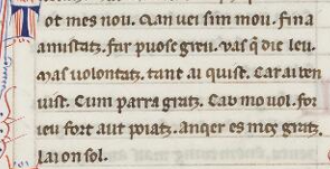 Tot mes nou. Qan uei sim mou. fina
amistatz. far puosc greu. Mas q̃ die leu.
mas uolontatz. tant ai quist. Car ai ben
uist. Cum parra gratz. Cab mo uol. for
ieu fort aut poiatz. anqer es meg gratz.
Lai on sol.